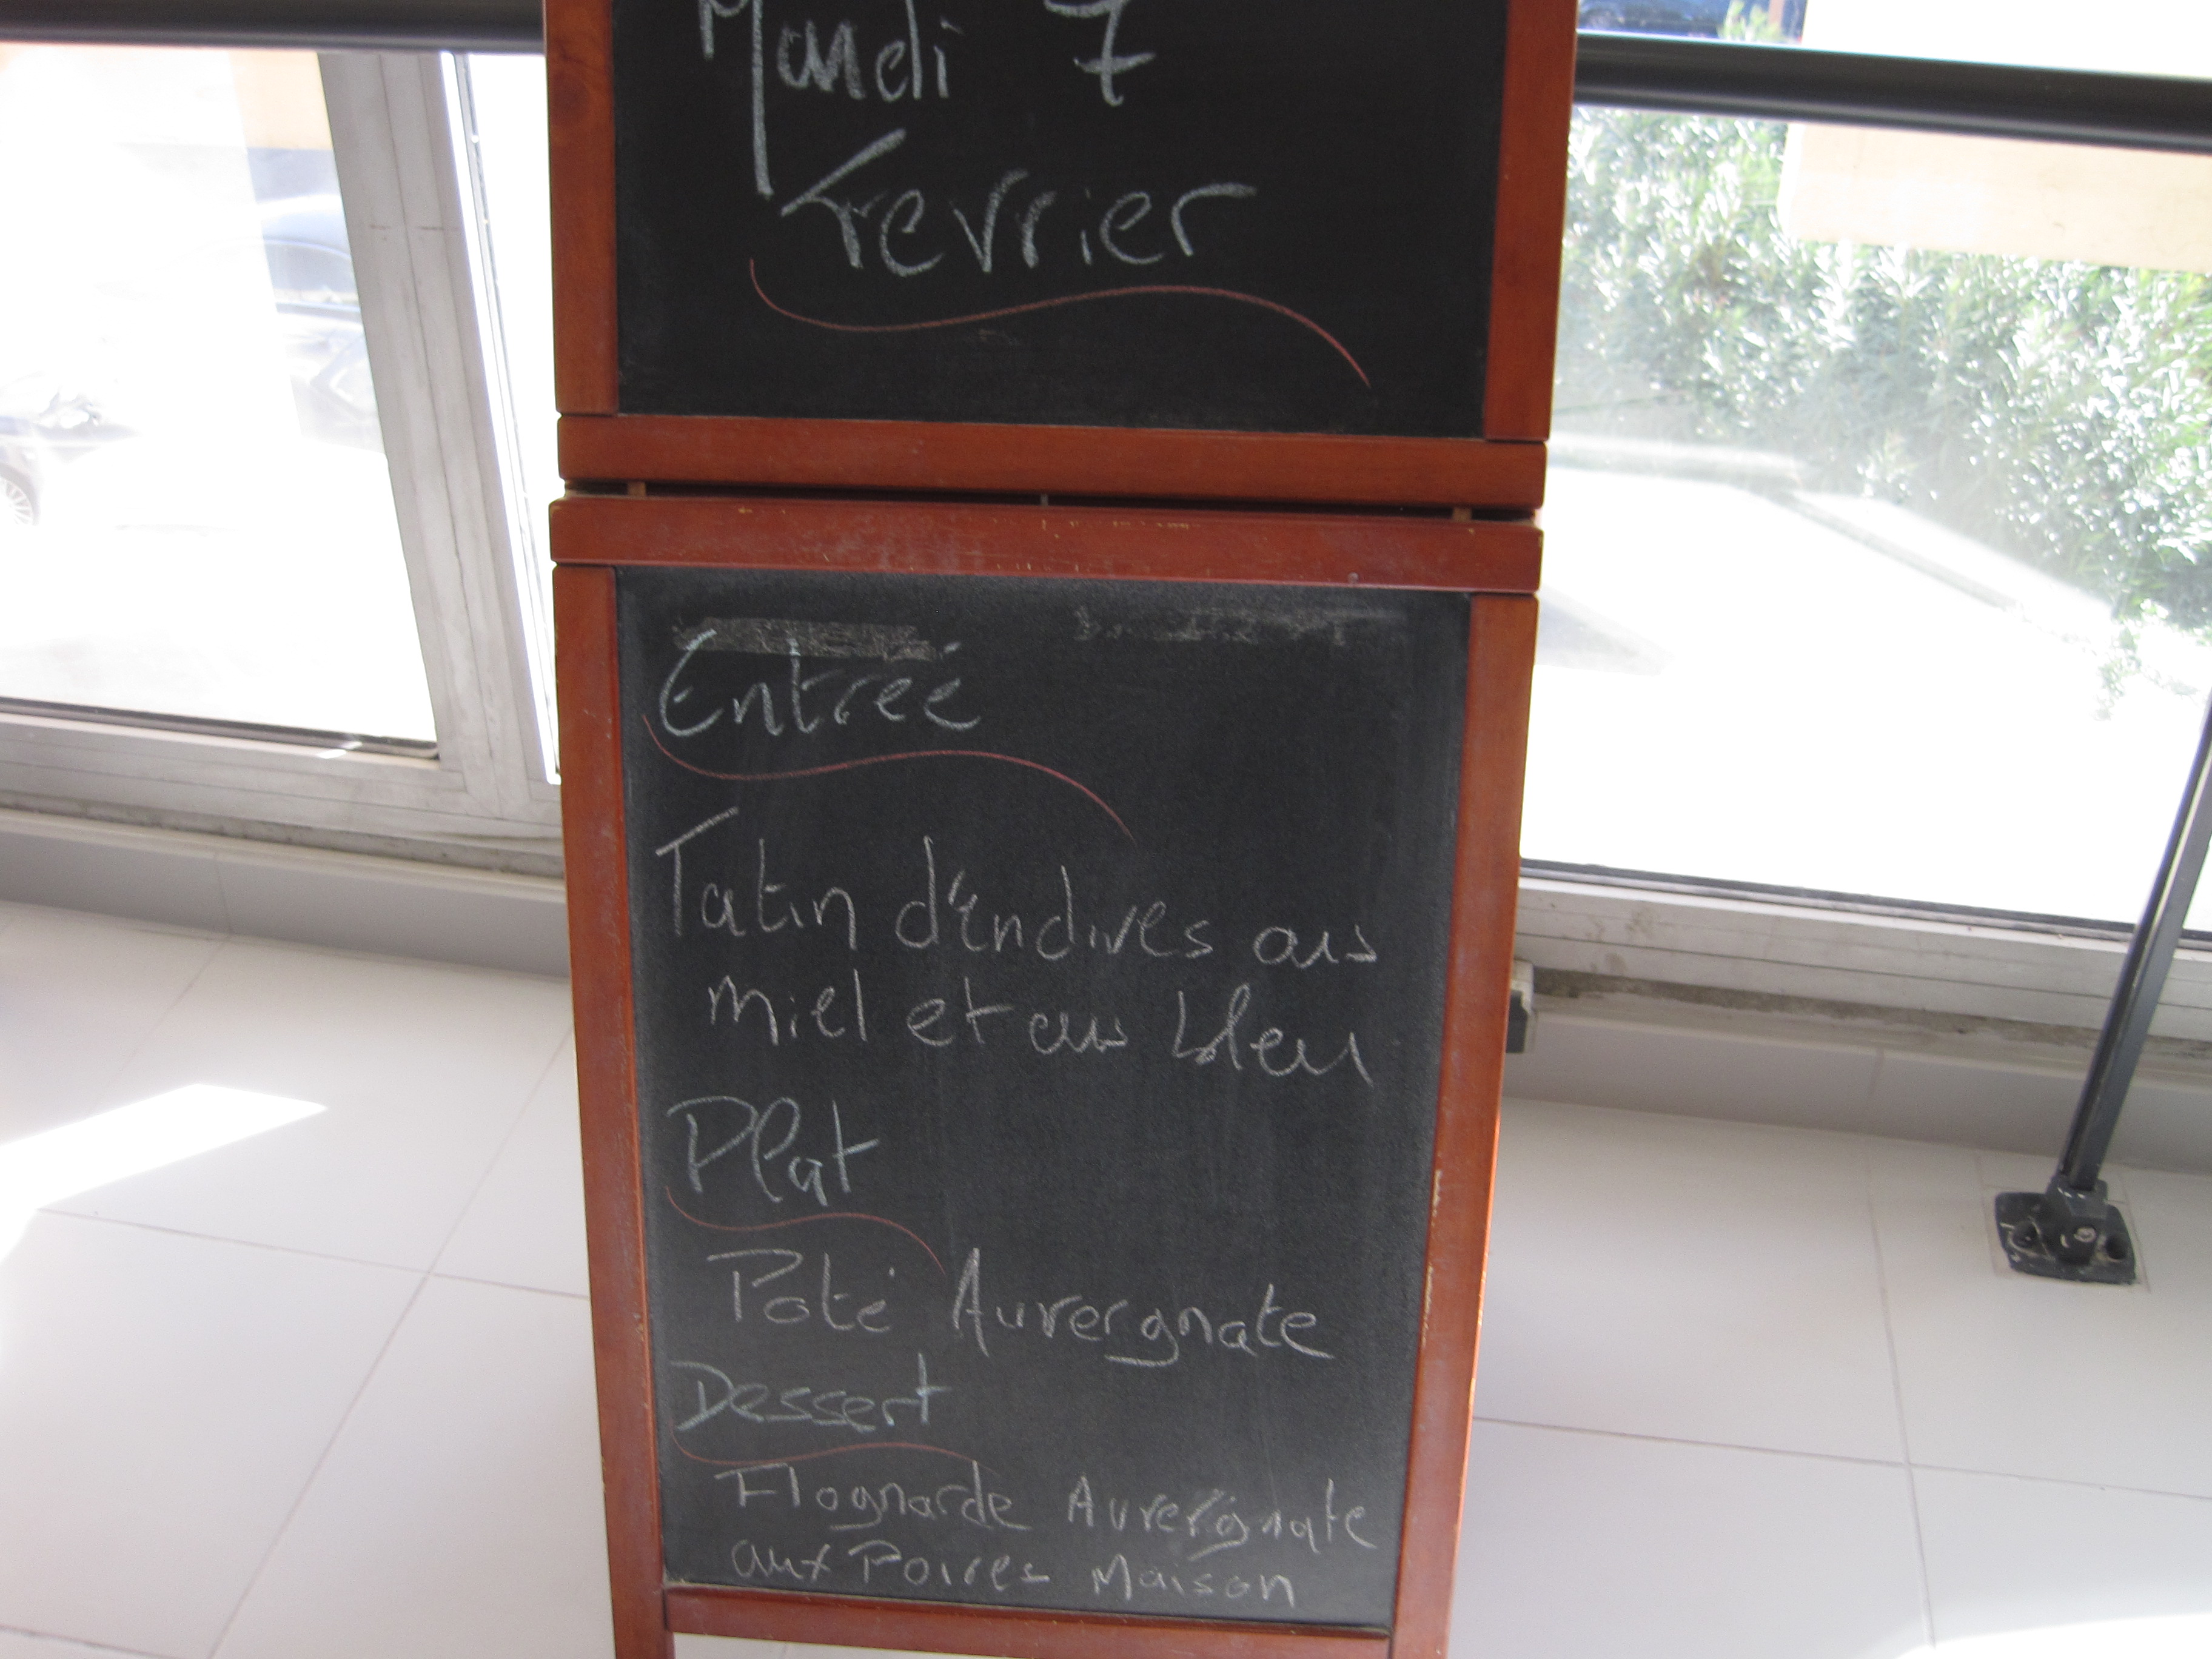 Mardi 7
Fevrier
Entrée
Tatin d'endives au
miel et au bleu
Plat
Poté Auvergnate
Dessert
Flognarde Auvergnate
aux Poires Maison